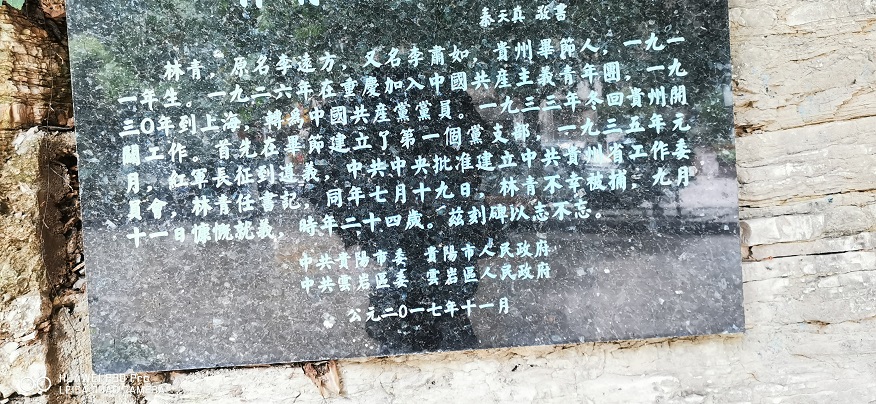 秦天真 敬書
林青，原名李遠方，又名李肅如，貴州畢節人，一九一
一年生。一九二六年在重慶加入中國共産主義青年團。一九
三〇年到上海，轉爲中國共産黨黨員。一九三三年冬回貴州開
闢工作。首先在畢節建立了第一個黨支部，一九三五年元
月，紅軍長征到遵義，中共中央批准建立中共貴州省工作委
員會，林青任書記，同年七月十九日，林青不幸被捕，九月
十一日慷慨就義，時年二十四歲。兹刻碑以志不忘。
中共貴陽市委 貴陽市人民政府
中共雲岩區委 雲岩區人民政府
公元二〇一七年十一月